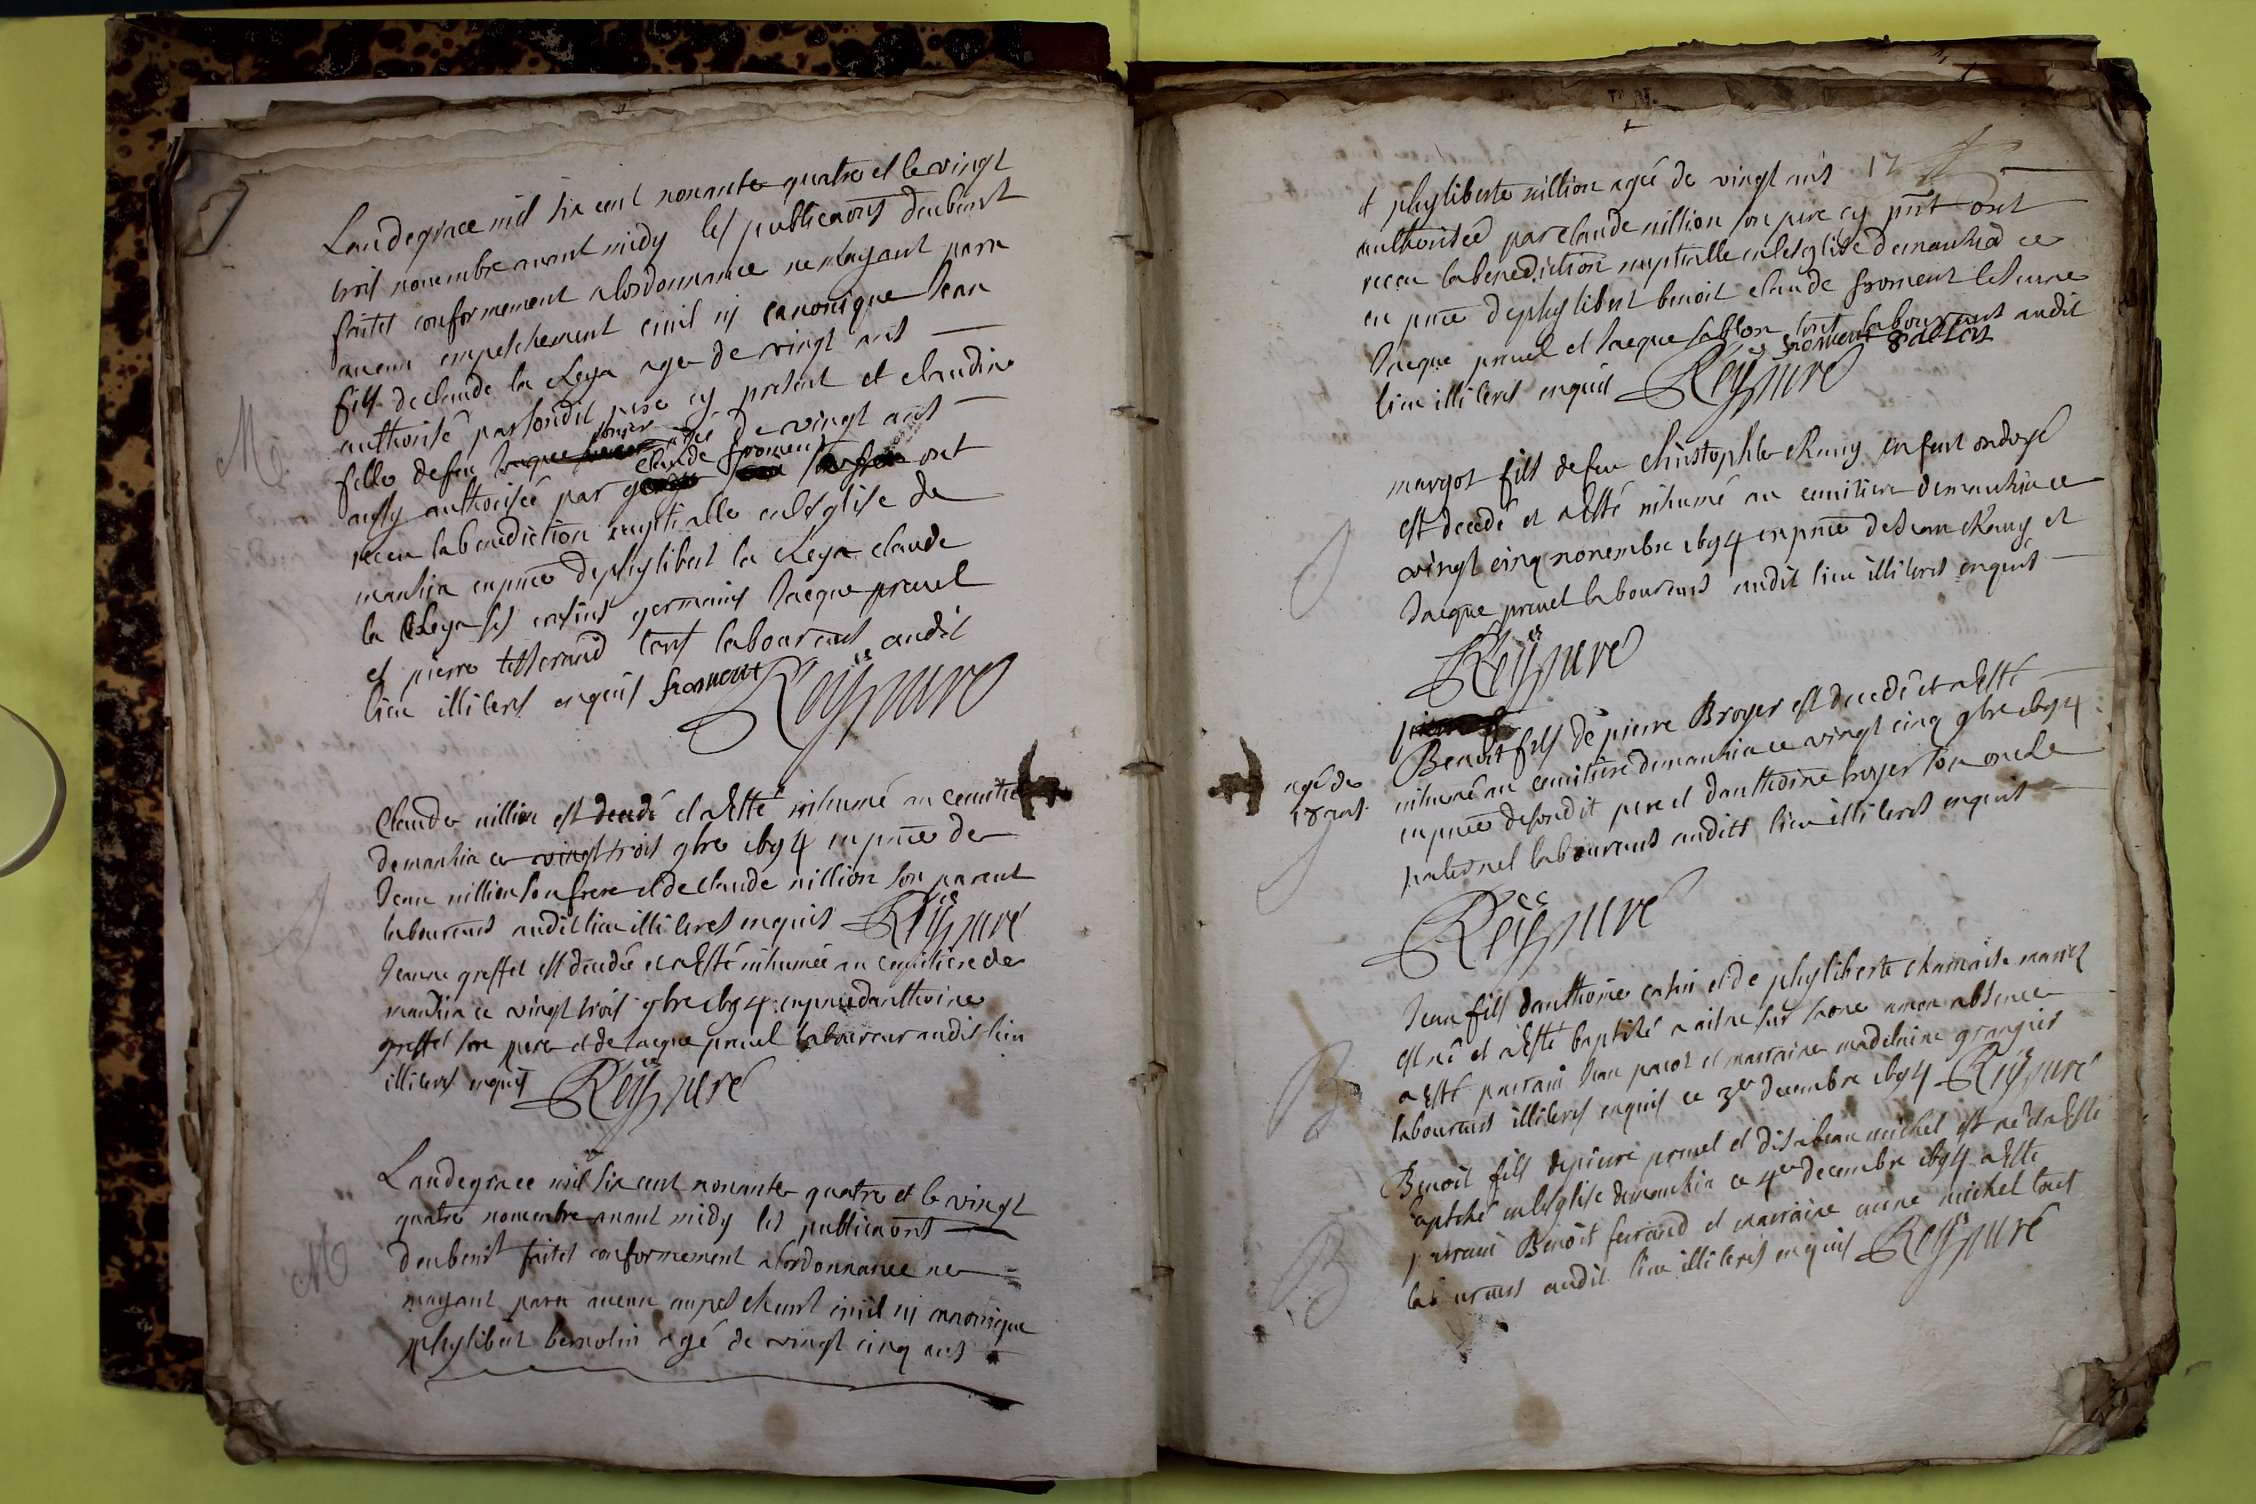 Landegrace mil six cent nonante quatre et le vingt
trois novembre avant midy les publicaons deubemt
faites conformement a lordonnance ne mayant paru
aucun empeschement civil ny canonique Jean
fils de claude la Leya age de vingt ans
authorisé par sondit pere cy present et claudine
fille defeu agée de vingt ans
aussy authorisée par claude froment ont
receu la benediction nuptialle en leglise de
manhia en pnce de phylibert la Leya claude
la Leya ses cousins germains Jacque pruuel
et pierre tisserand tous laboureurs audit
lieu illiteres enquis froment Reÿ curé
M
Claude million est decedé et a Esté inhumé au cemitie
de manhia ce vingt trois 9bre 1694 en pnce de
Jean million son frere et de claude million son parent
laboureurs audit lieu illiteres enquis Reÿ curé
Jeanne greffet est decedée et a Esté inhumée au cemitiere de
manhia ce vingt trois 9bre 1694 en pnce danthoine
greffet son pere et de Jacque pruuel laboureur audit lieu
illiteres enquis Reÿ curé
Landegrace mil six cent nonante quatre et le vingt
quatre novembre avant midy les publicaons
deubemt faites conformement a lordonnance ne
mayant paru aucun empeschemt civil ny canonique
phylibert bernolin agé de vingt cinq ans
M
et phyliberte million agée de vingt ans 17
authorisée par claude million son pere cy pnt ont
receu la benediction nuptialle en leglise de manhia ce
en pnce de phylibert benoit claude froment le Jeune
Jacque pruuel et Jacque sablon tous laboureurs audit
lieu illiteres enquis Reÿ curé froment
margot fils defeu christophle chany enfant ondoyé
est decedé et a Esté inhumé au cemitiere de manhia ce
vingt cinq novembre 1694 en pnce de Jean chany et
Jacque pruuel laboureurs audit lieu illiteres enquis
Reÿ curé
Benoit fils de pierre Broyer est decedé et a Esté
agé de
18 ans
inhumé au cemitiere de manhia ce vingt cinq 9bre 1694
en pnce de sondit pere et danthoine broyer son oncle
paternel laboureurs audits lieu illiteres enquis
Reÿ curé
Jean fils danthoine catin et de phyliberte chamaise mariez
est né et a Esté baptisé a aisne sur saone a mon absence
a Esté parrain Jean pacot et marraine madelaine grangier
laboureurs illiteres enquis ce 3er decembre 1694 Reÿ curé
B
Benoit fils de pierre pruuel et disabeau michel est né et a Esté
baptisé en leglise de manhia ce 4er decembre 1694 a Esté
parrain Benoit ferrand et marraine anne michel tous
laboureurs audit lieu illiteres enquis Reÿ curé
B